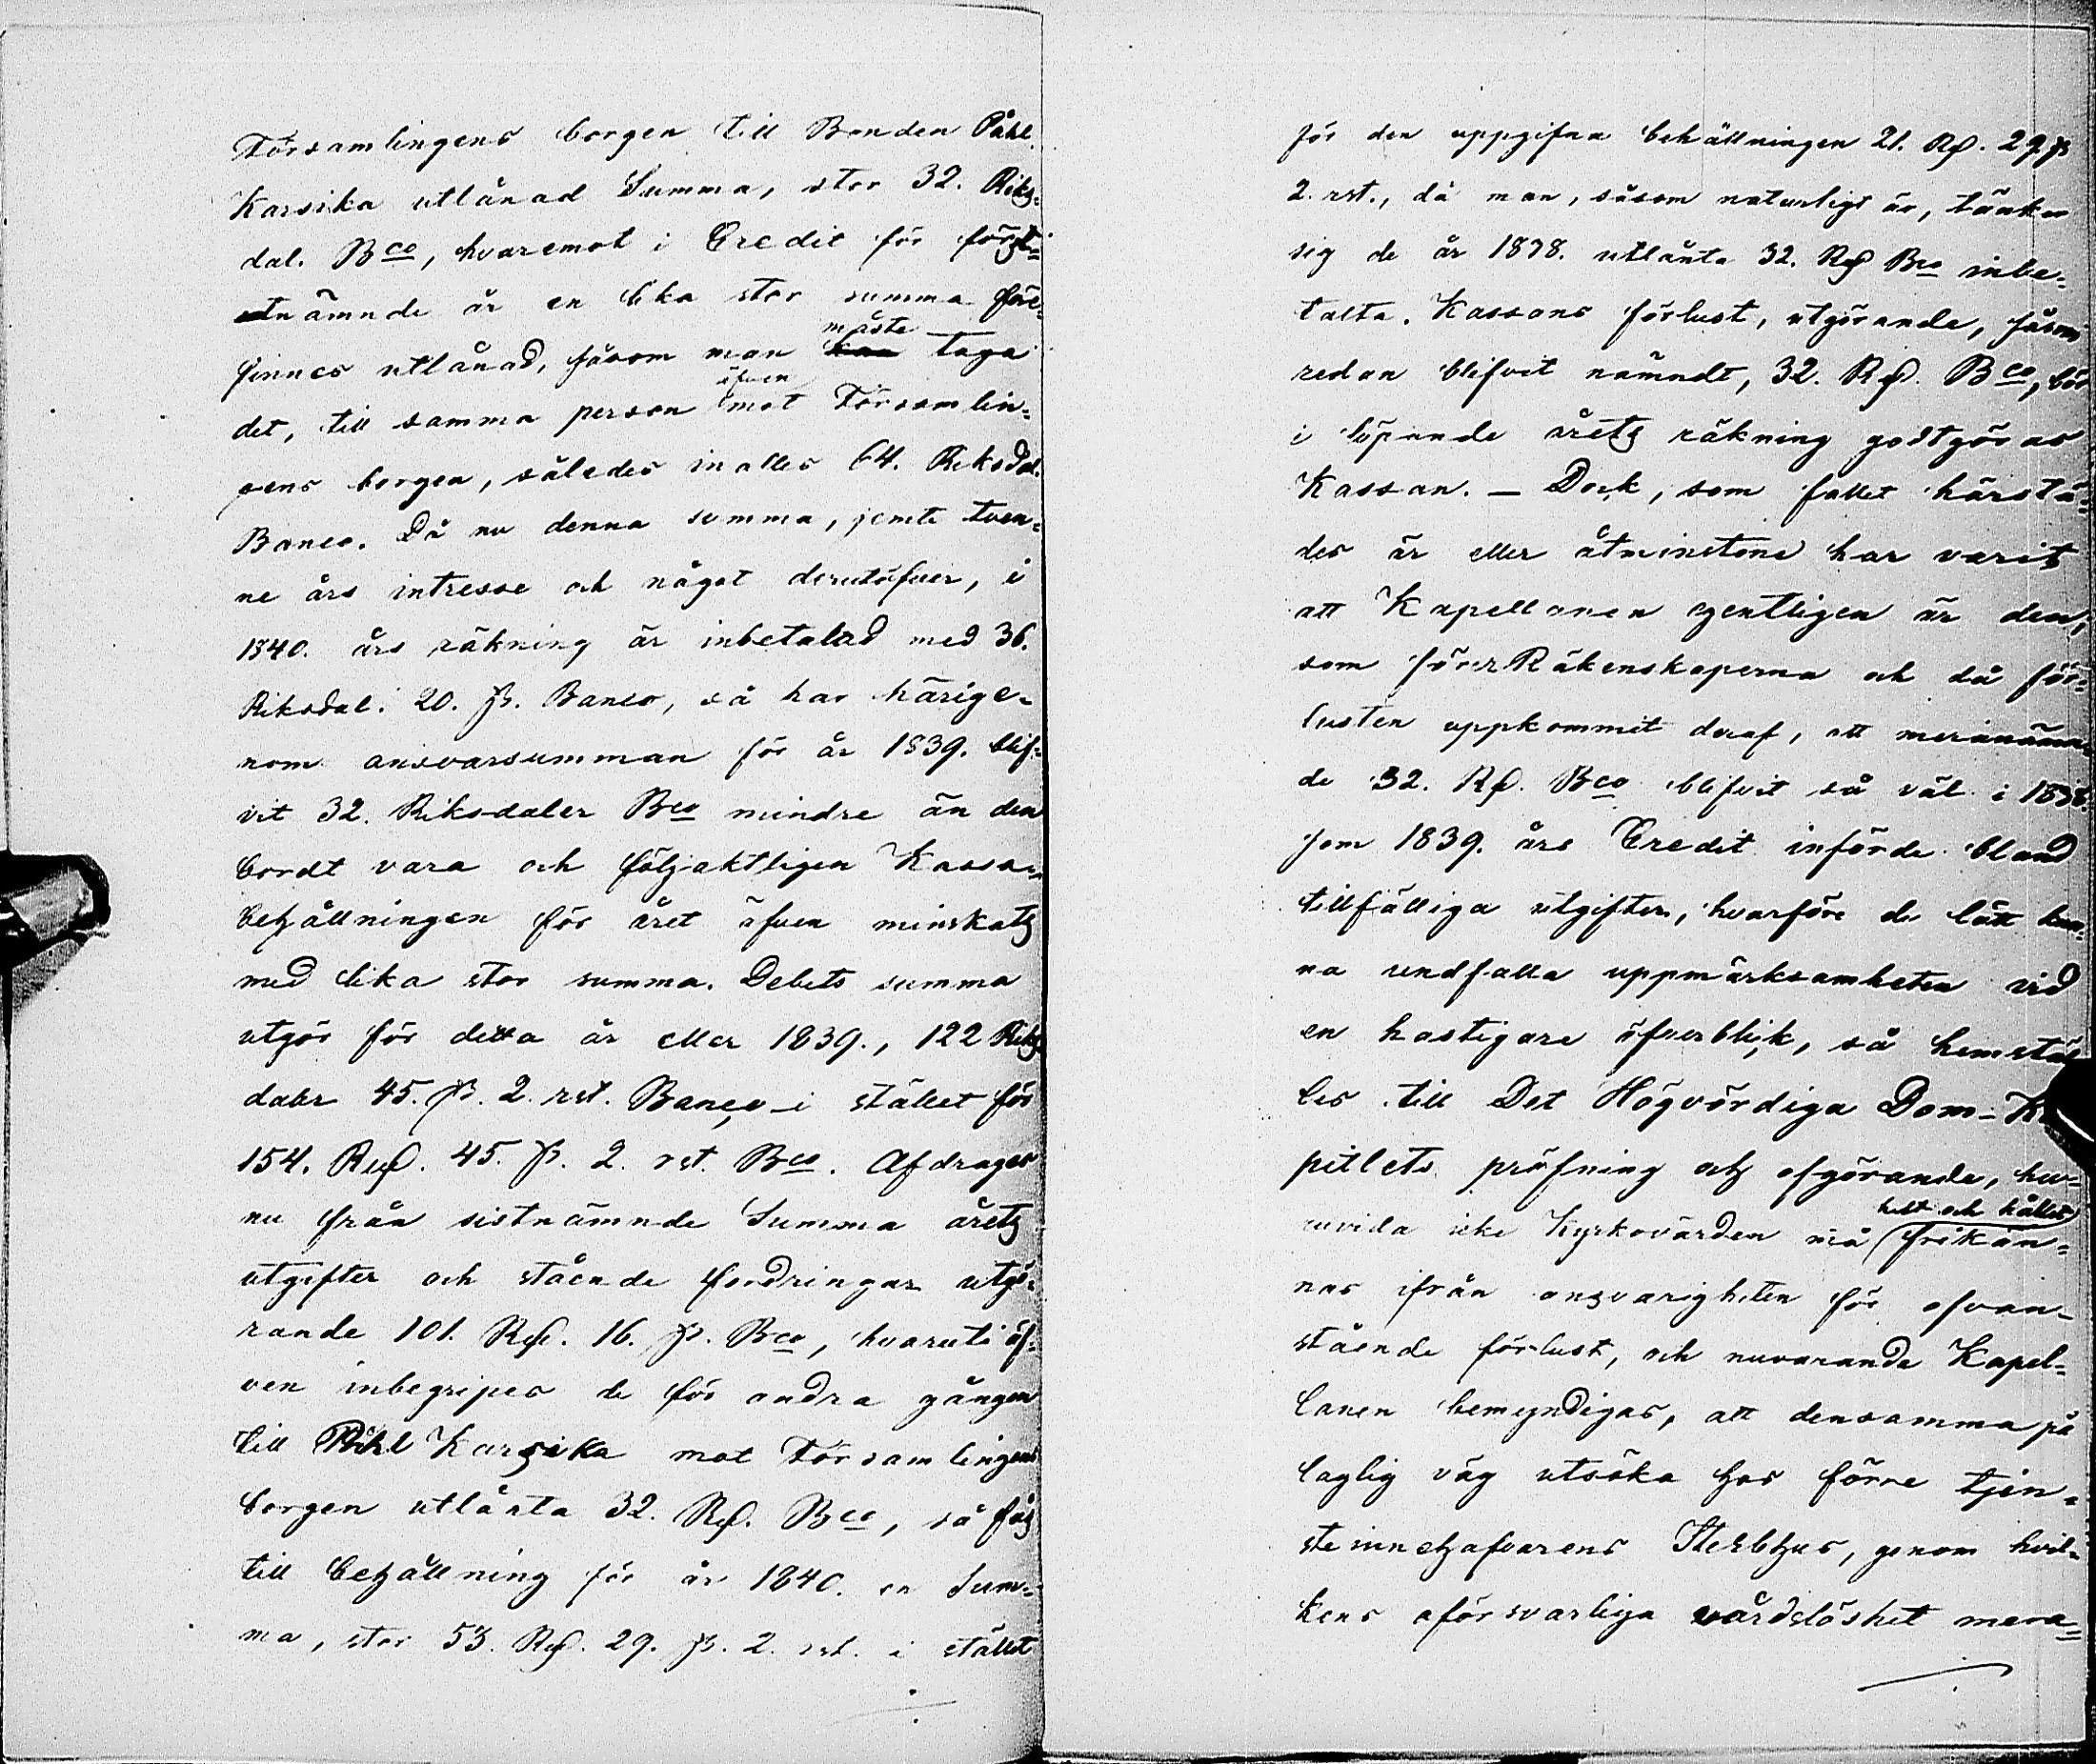 Församlingens borgen till Bonden Påhl
Karsika utlånad Summa, stor 32. Riks=
dal. Bco, hvaremot i Credit för först=
nämnde år en lika stor summa före=
finnes utlånad, såsom man måste taga
det, till samma person äfven mot Församlin=
gens borgen, således inalles 64. Riksdal.
Banco. Då nu denna summa, jemte tven=
ne års intresse och något derutöfver, i
1840. års räkning är inbetalad med 36.
Riksdal. 20. ß. Banco, så har härige=
nom ansvarsumman för år 1839. blif=
vit 32. Riksdaler Bco mindre än den
bordt vara och följaktligen Kassa=
behållningen för året äfven minskats
med lika stor summa. Debets summa
utgör för detta år eller 1839., 122 Riks
daler 45. ß. 2. rst. Banco i stället för
154. Rd. 45. ß. 2. rst. Bco. Afdrages
nu från sistnämnde Summa årets
utgifter och stående fordringar utgö=
rande 101. Rd. 16. ß. Bco, hvaruti äf=
ven inbegripes de för andra gången
till Påhl Karsika mot Församlingens
borgen utlånta 32. Rd. Bco, så fås
till behållning för år 1840. en Sum=
ma, stor 53. Rd. 29. ß. 2. rst. i stället
för den uppgifna behållningen 21. Rd. 29 ß
2. rst., då man, såsom naturligt är, tänker
sig de år 1838. utlånta 32. Rd Bco inbe=
talta. Kassans förlust, utgörande, såsom
redan blifvit nämndt, 32. Rd. Bco, bör
i löpande årets räkning godtgöras
Kassan. — Dock, som fallet härstä=
des är eller åtminstone har varit
att Kapellanen egentligen är den,
som förer Räkenskaperna och då för=
lusten uppkommit deraf, att meranämn=
de 32. Rd. Bco blifvit så väl i 1838.
som 1839. års Credit införde bland
tillfälliga utgifter, hvarföre de lätt kun=
na undfalla uppmärksamheten vid
en hastigare öfverblick, så hemstäl
les till Det Högvördiga Dom-Ka
pitlets pröfning och afgörande, hu=
ruvida icke Kyrkovärden må helt och hållet frikän=
nas ifrån ansvarigheten för ofvan=
stående förlust, och nuvarande Kapel=
lanen bemyndigas, att densamma på
laglig väg utsöka hos förre tjen=
steinnehafvarens Sterbhus, genom hvil=
kens oförsvarliga vårdslöshet mera=